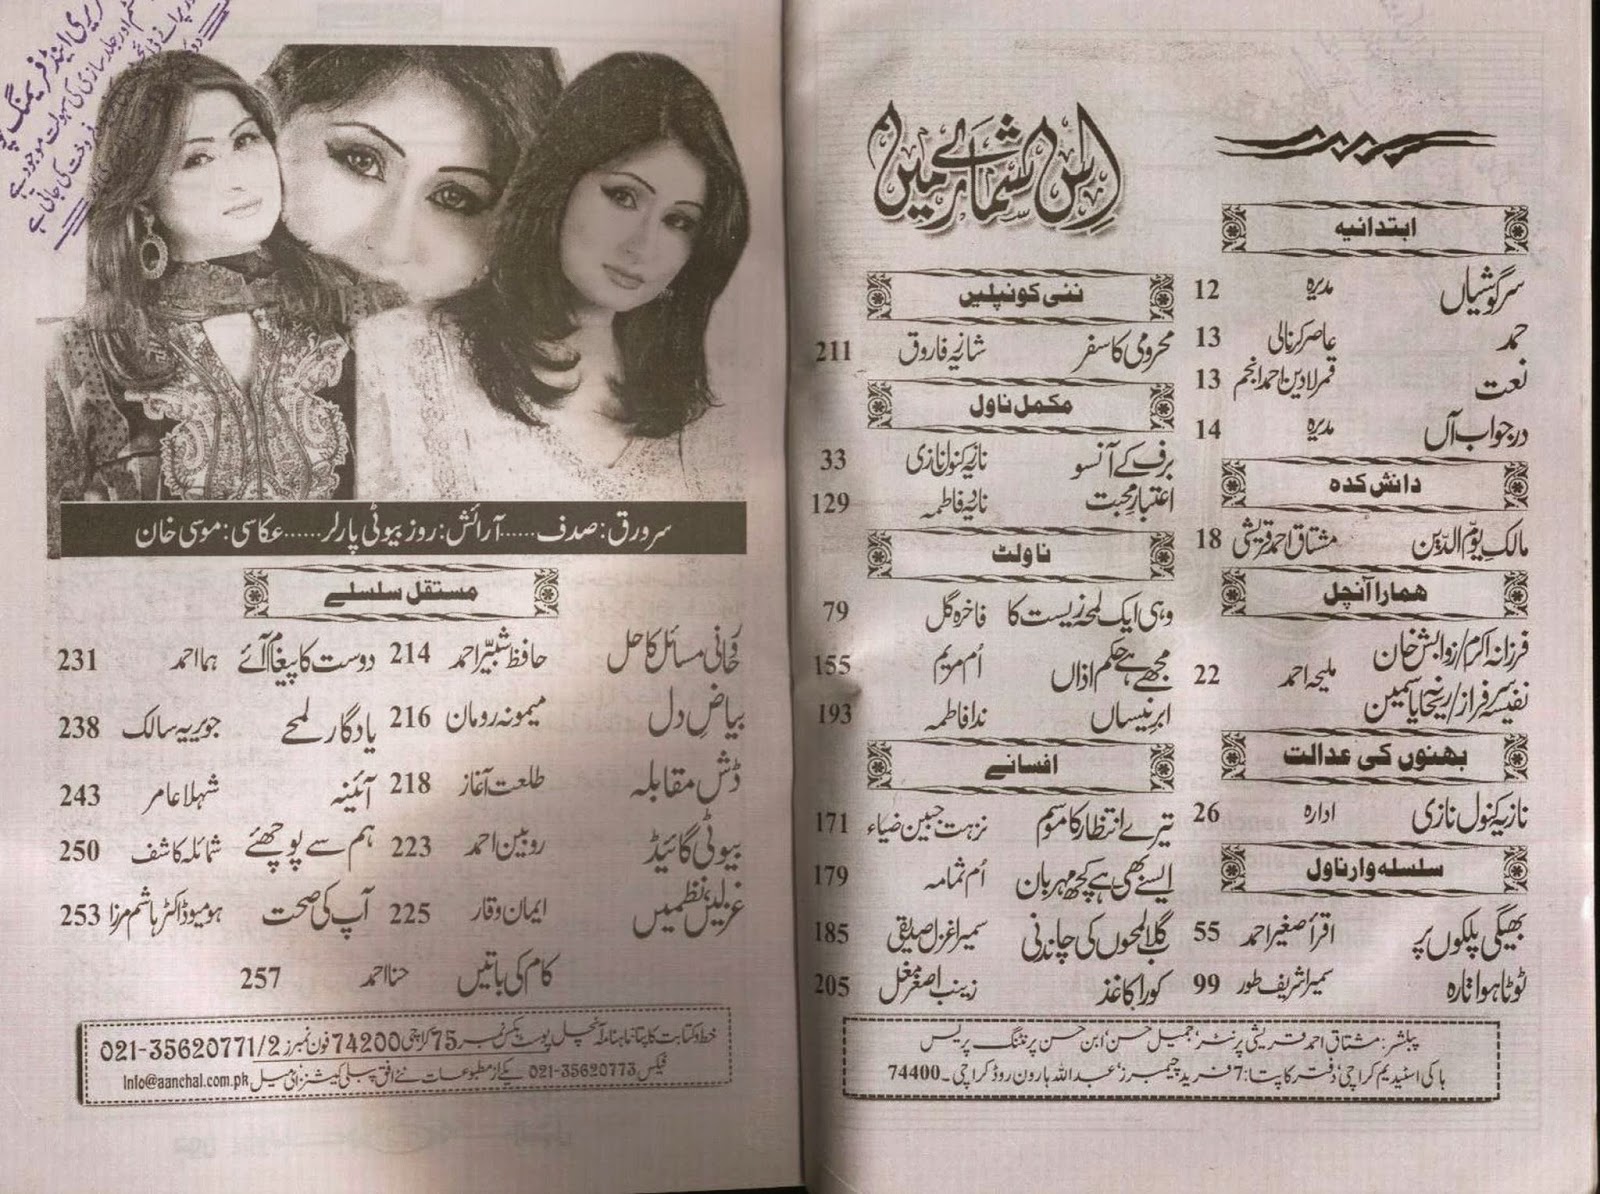 اس شمارے میں
ابتدائیہ
سرگوشیاں مدیرہ 12
حمد عاصر کرنالی 13
نعت قمرلادین احمد انجم 13
در جواب آں مدیرہ 14
دانش کدہ
مالکِ یوم الدّین مشتاق احمد قریشی 18
ہمارا آنچل
فرزانہ اکرم/زوابش خان
نفیسہ سرفراز/ریحانہ یاسمین ملیحہ احمد 22
بہنوں کی عدالت
نازیہ کنول نازی ادارہ 26
سلسلہ وار ناول
بھیگی پلکوں پر اقرأ صغیر احمد 55
ٹوٹا ہوا تارہ سمیرا شریف طور 99
ننی کونپلیں
محرومی کا سفر شازیہ فاروق 211
مکمل ناول
برف کے آنسو نازیہ کنول نازی 33
اعتبارِ محبت نادیہ فاطمہ 129
ناولٹ
وہی ایک لمحہ زیست کا فاخرہ گل 79
مجھے ہے حکم اذاں اُم مریم 155
ابرِ نیساں ندا فاطمہ 193
افسانے
تیرے انتظار کا موسم نزہت جبین ضیاء 171
ایسے بھی ہے کچھ مہرباں اُم ثمامہ 179
گلاب لمحوں کی چاندنی سمیرا غزل صدیقی 185
کورا کاغذ زینب اصغر مغل 205
پبلشر: مشتاق احمد قریشی پرنٹر: جمیل حسن ابن حسن پرنٹنگ پریس
ہاکی اسٹیڈیم کراچی دفتر کا پتا: 7 فرید چیمبرز عبداللہ ہارون روڈ کراچی۔ 74400
سرورق: صدف......آرائش: روز بیوٹی پارلر......عکاسی: موسیٰ خان
مستقل سلسلے
روحانی مسائل کا حل حافظ شبیّر احمد 214 دوست کا پیغام آئے ہما احمد 231
بیاضِ دل میمونہ رومان 216 یادگار لمحے جویریہ سالک 238
ڈش مقابلہ طلعت آغاز 218 آئینہ شہلا عامر 243
بیوٹی گائیڈ روبین احمد 223 ہم سے پوچھئے شمائلہ کاشف 250
غزلیں، نظمیں ایمان وقار 225 آپ کی صحت ہومیو ڈاکٹر ہاشم مرزا 253
کام کی باتیں حنا احمد 257
خط و کتابت کا پتا: ماہنامہ آنچل پوسٹ بکس نمبر 75 کراچی 74200 فون نمبرز 021-35620771/2
فیکس 021-35620773 یکے از مطبوعات نئے افق پبلی کیشنز ای میل Info@aanchal.com.pk